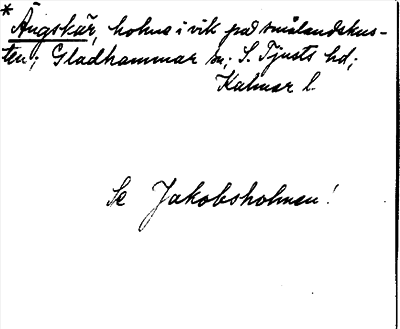 * Ängskär, holme i vik på smålandskus-
ten; Gladhammar sn; S. Tjusts hd;
Kalmar l.
Se Jakobsholmen!